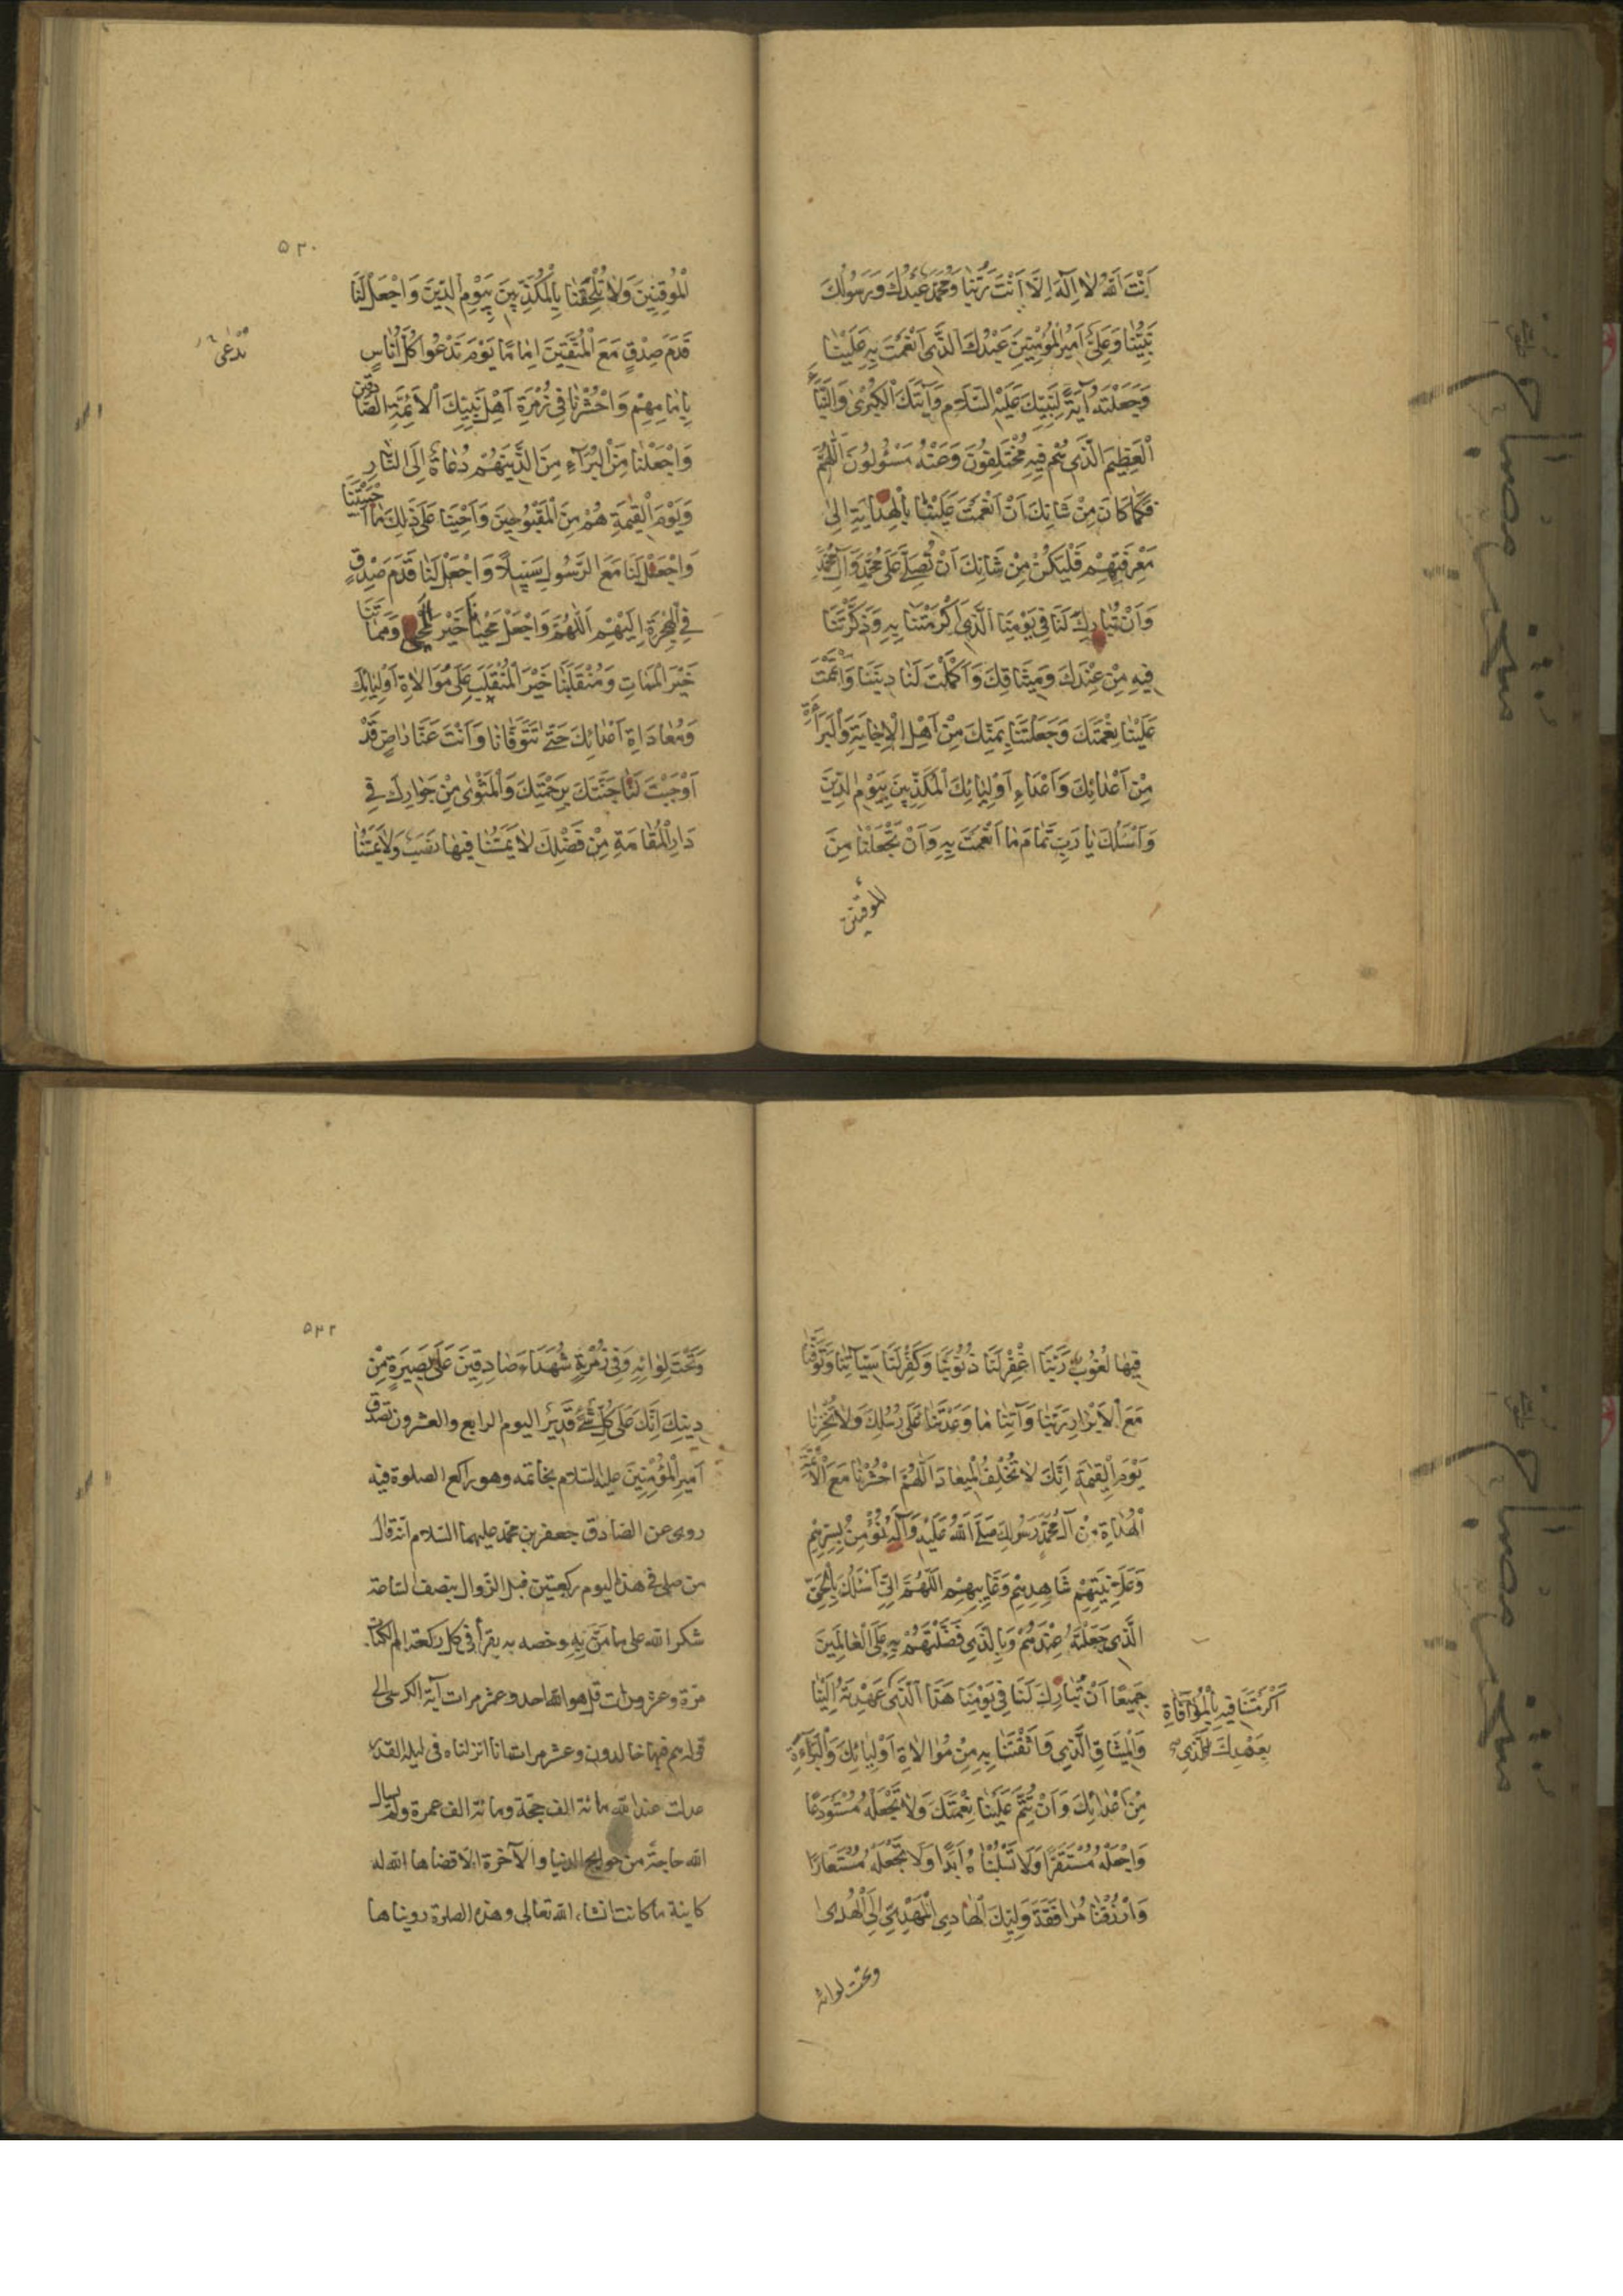 اَنْتَ اللّٰهُ لا اِلٰهَ اِلّا اَنْتَ رَبُّنا وَمُحَمَّدٌ عَبْدُكَ وَرَسُولُكَ
نَبِيُّنا وَعَلِيٌّ اَمِيرُ الْمُؤْمِنِينَ عَبْدُكَ الَّذِي اَنْعَمْتَ بِهِ عَلَيْنا
وَجَعَلْتَهُ آيَةً لِنَبِيِّكَ عَلَيْهِ السَّلامُ وَآيَتَكَ الْكُبْرىٰ وَالنَّبَأَ
الْعَظِيمَ الَّذِي هُمْ فِيهِ مُخْتَلِفُونَ وَعَنْهُ مَسْئُولُونَ اَللّٰهُمَّ
فَكَما كانَ مِنْ شَانِكَ اَنْ اَنْعَمْتَ عَلَيْنا بِالْهِدايَةِ اِلىٰ
مَعْرِفَتِهِمْ فَلْيَكُنْ مِنْ شَانِكَ اَنْ تُصَلِّيَ عَلىٰ مُحَمَّدٍ وَآلِ مُحَمَّدٍ
وَاَنْ تُبارِكَ لَنا فِي يَوْمِنَا الَّذِي اَكْرَمْتَنا بِهِ وَذَكَّرْتَنا
فِيهِ مِنْ عَهْدِكَ وَمِيثاقِكَ وَاَكْمَلْتَ لَنا دِينَنا وَاَتْمَمْتَ
عَلَيْنا نِعْمَتَكَ وَجَعَلْتَنا بِمَنِّكَ مِنْ اَهْلِ الْاِجابَةِ وَالْبَراءَةِ
مِنْ اَعْدائِكَ وَاَعْداءِ اَوْلِيائِكَ الْمُكَذِّبِينَ بِيَوْمِ الدِّينِ
وَاَسْئَلُكَ يا رَبِّ تَمامَ ما اَنْعَمْتَ بِهِ وَاَنْ تَجْعَلَنا مِنَ
الموقنين
۵۳۰
الْمُوقِنِينَ وَلا تُلْحِقْنا بِالْمُكَذِّبِينَ بِيَوْمِ الدِّينِ وَاجْعَلْ لَنا
قَدَمَ صِدْقٍ مَعَ الْمُتَّقِينَ اِمامًا يَوْمَ تَدْعُوا كُلَّ اُناسٍ
تُدْعىٰ
بِاِمامِهِمْ وَاحْشُرْنا فِي زُمْرَةِ اَهْلِ بَيْتِ نَبِيِّكَ الْاَئِمَّةِ الصّادِقِينَ
وَاجْعَلْنا مِنَ الْبُرَآءِ مِنَ الَّذِينَ هُمْ دُعاةٌ اِلَى النّارِ
وَيَوْمَ الْقِيٰمَةِ هُمْ مِنَ الْمَقْبُوحِينَ وَاَحْيِنا عَلىٰ ذٰلِكَ ما اَحْيَيْتَنا
وَاجْعَلْ لَنا مَعَ الرَّسُولِ سَبِيلًا وَاجْعَلْ لَنا قَدَمَ صِدْقٍ
فِي الْهِجْرَةِ اِلَيْهِمْ اَللّٰهُمَّ وَاجْعَلْ مَحْيانا خَيْرَ الْمَحْيا وَمَماتَنا
خَيْرَ الْمَماتِ وَمُنْقَلَبَنا خَيْرَ الْمُنْقَلَبِ عَلىٰ مُوالاةِ اَوْلِيائِكَ
وَمُعاداةِ اَعْدائِكَ حَتّىٰ تَتَوَفّانا وَاَنْتَ عَنّا راضٍ قَدْ
اَوْجَبْتَ لَنا جَنَّتَكَ بِرَحْمَتِكَ وَالْمَثْوىٰ مِنْ جِوارِكَ فِي
دارِ الْمُقامَةِ مِنْ فَضْلِكَ لا يَمَسُّنا فِيها نَصَبٌ وَلا يَمَسُّنا
فِيها لُغُوبٌ رَبَّنَا اغْفِرْ لَنا ذُنُوبَنا وَكَفِّرْ لَنا سَيِّآتِنا وَتَوَفَّنا
مَعَ الْاَبْرارِ رَبَّنا وَآتِنا ما وَعَدْتَنا عَلىٰ رُسُلِكَ وَلا تُخْزِنا
يَوْمَ الْقِيٰمَةِ اِنَّكَ لا تُخْلِفُ الْمِيعادَ اَللّٰهُمَّ احْشُرْنا مَعَ الْاَئِمَّةِ
الْهُداةِ مِنْ آلِ مُحَمَّدٍ رَسُولِكَ صَلَّى اللّٰهُ عَلَيْهِ وَآلِهِ نُؤْمِنُ بِسِرِّهِمْ
وَعَلانِيَتِهِمْ شاهِدِهِمْ وَغايِبِهِمْ اَللّٰهُمَّ اِنِّي اَسْئَلُكَ بِالْحَقِّ
الَّذِي جَعَلْتَهُ عِنْدَهُمْ وَبِالَّذِي فَضَّلْتَهُمْ بِهِ عَلَى الْعالَمِينَ
جَمِيعًا اَنْ تُبارِكَ لَنا فِي يَوْمِنا هٰذَا الَّذِي عَهِدْتَهُ اِلَيْنا
اَكْرَمْتَنا فِيهِ بِالْمُوافاةِ
بِعَهْدِكَ الَّذِي
وَالْمِيثاقِ الَّذِي واثَقْتَنا بِهِ مِنْ مُوالاةِ اَوْلِيائِكَ وَالْبَراءَةِ
مِنْ اَعْدائِكَ وَاَنْ تُتِمَّ عَلَيْنا نِعْمَتَكَ وَلا تَجْعَلْهُ مُسْتَوْدَعًا
وَاجْعَلْهُ مُسْتَقَرًّا وَلا تَسْلُبْناهُ اَبَدًا وَلا تَجْعَلْهُ مُسْتَعارًا
وَارْزُقْنا مُرافَقَةَ وَلِيِّكَ الْهادِي الْمَهْدِيِّ اِلَى الْهُدىٰ
وتحت لوائه
۵۳۲
وَتَحْتَ لِوائِهِ وَفِي زُمْرَتِهِ شُهَداءَ صادِقِينَ عَلىٰ بَصِيرَةٍ مِنْ
دِينِكَ اِنَّكَ عَلىٰ كُلِّ شَيْءٍ قَدِيرٌ اليوم الرابع والعشرون تصدق
اَمِيرُ الْمُؤْمِنِينَ عليه السلام بخاتمه وهو راكع الصلوة فيه
روى عن الصادق جعفر بن محمد عليهما السلام انه قال
من صلى في هذا اليوم ركعتين قبل الزوال بنصف ساعة
شكرا لله على ما مَنَّ بِهِ وخصه به يقرأ في كل ركعة ام الكتاب
مرة وعشر مرات قل هو الله احد وعشر مرات آية الكرسي الى
قوله هم فيها خالدون وعشر مرات انا انزلناه في ليلة القدر
عدلت عند الله مائة الف حجة ومائة الف عمرة ولم يسال
الله حاجة من حوايج الدنيا والآخرة الا قضاها الله له
كاينة ما كانت انشاء الله تعالى وهذه الصلوة رويناها